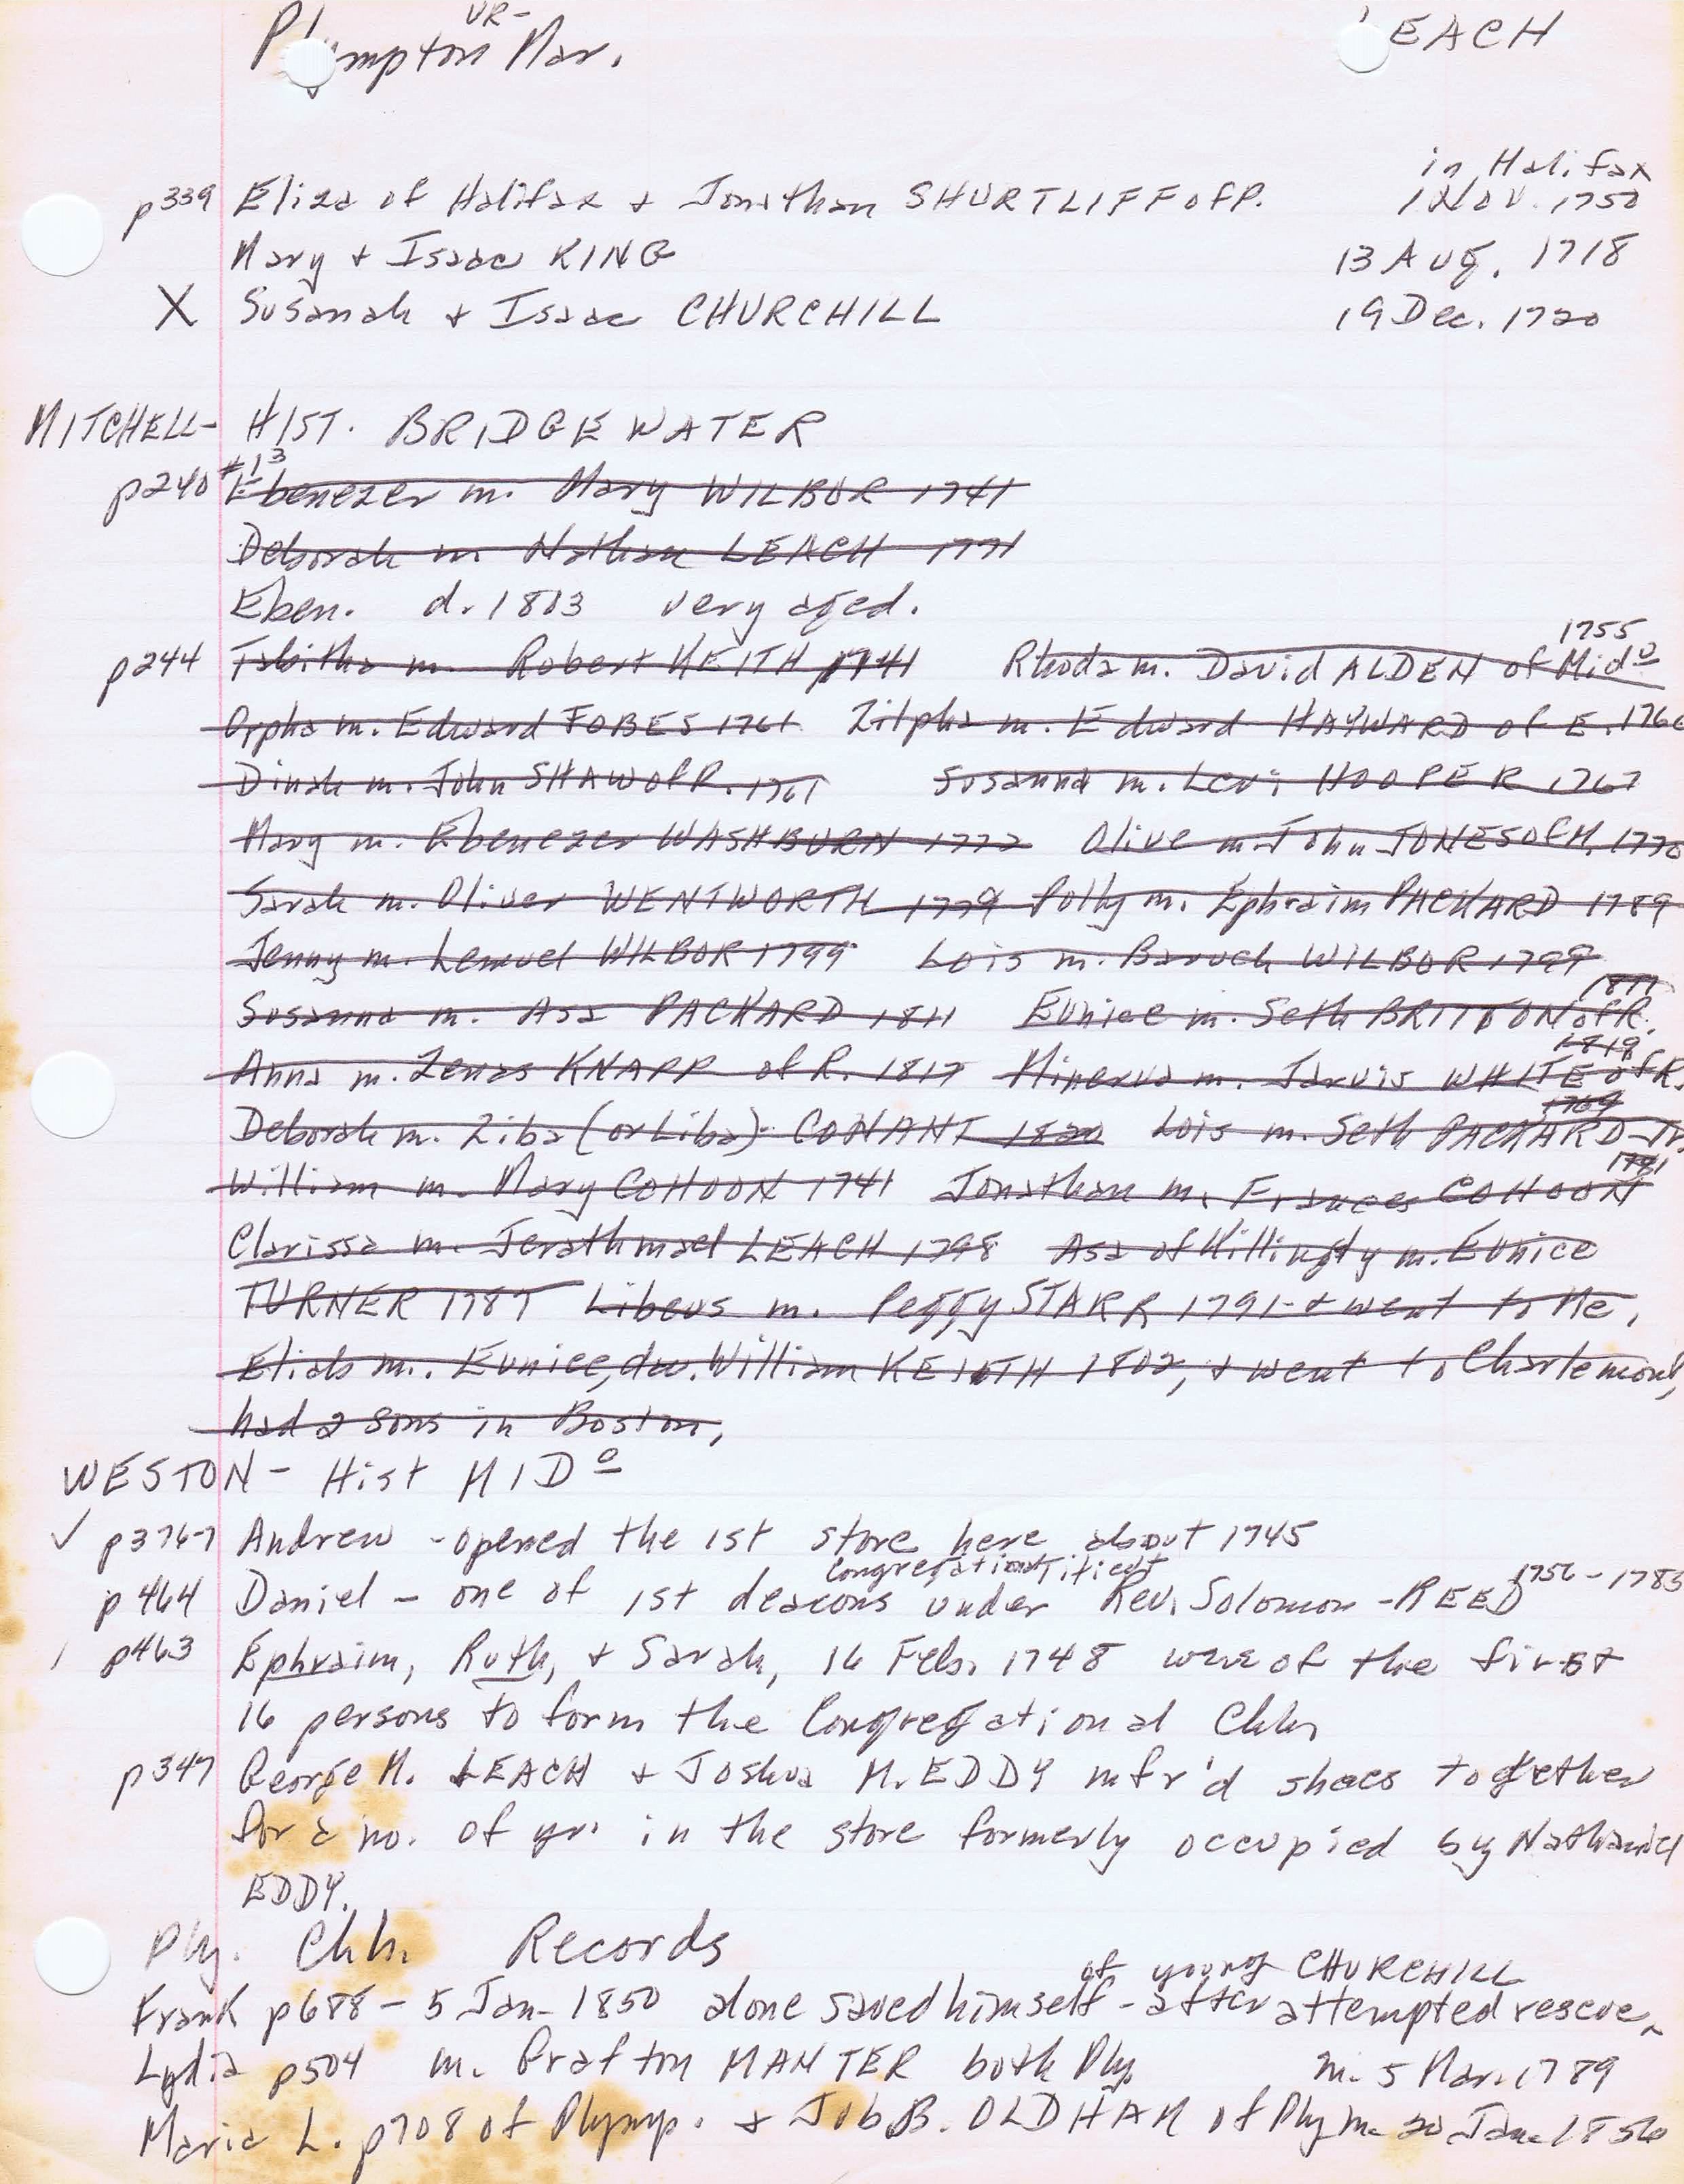 VR-
Plympton Mar. LEACH
in Halifax
p339 Eliza of Halifax + Jonathan SHURTLIFF of P. 1 Nov. 1750
Mary + Isaac KING 13 Aug. 1718
X Susanah + Isaac CHURCHILL 19 Dec. 1720
MITCHELL- HIST. BRIDGEWATER
#13
p240 Ebenezer m. Mary WILBOR 1741
Deborah m. Nathan LEACH 1771
Eben. d. 1803 very aged.
1755
p244 Tabitha m. Robert KEITH 1741 Rhoda m. David ALDEN of Mid⁰
Orpha m. Edward FOBES 1761 Zilpha m. Edward HAYWARD of E. 176
Dinah m. John SHAW of R. 1761 Susanna m. Levi HOOPER 1767
Mary m. Ebenezer WASHBURN 1772 Olive m. John JONES of M. 1770
Sarah m. Oliver WENTWORTH 1779 Polly m. Ephraim PACKARD 1789
Jenny m. Lemuel WILBOR 1799 Lois m. Baruch WILBOR 1799
1817
Susanna m. Asa PACKARD 1811 Eunice m. Seth BRITTON of R.
1819
Anna m. Zenas KNAPP of R. 1817 Minerva m. Jarvis WHITE of R.
1769
Deborah m. Ziba (or Liba) CONANT 1820 Lois m. Seth PACKARD Jr.
1741
William m. Mary COHOON 1741 Jonathan m. Frances COHOON
Clarissa m. Jerathmael LEACH 1798 Asa of Killingly m. Eunice
TURNER 1787 Libeus m. Peggy STARR 1791 + went to Me.
Eliab m. Eunice, dau. William KEITH 1802, + went to Charlemont,
had 2 sons in Boston,
WESTON- Hist MID⁰
✓ p376-7 Andrew - opened the 1st store here about 1745
Congregational Titicut 1756-1785
p464 Daniel - one of 1st deacons under Rev. Solomon - REED
/ p463 Ephraim, Ruth, + Sarah, 16 Feb. 1748 were of the first
16 persons to form the Congregational Chh
p347 George M. LEACH + Joshua M. EDDY mfr'd shoes together
for a no. of yrs in the store formerly occupied by Nathaniel
EDDY.
Ply. Chh. Records
of young CHURCHILL
Frank p688 - 5 Jan- 1850 alone saved himself - after attempted rescue
Lydia p504 m. Grafton MANTER both Ply. m. 5 Mar. 1789
Maria L. p708 of Plymp. + Job B. OLDHAM of Ply m. 20 Jan. 1856